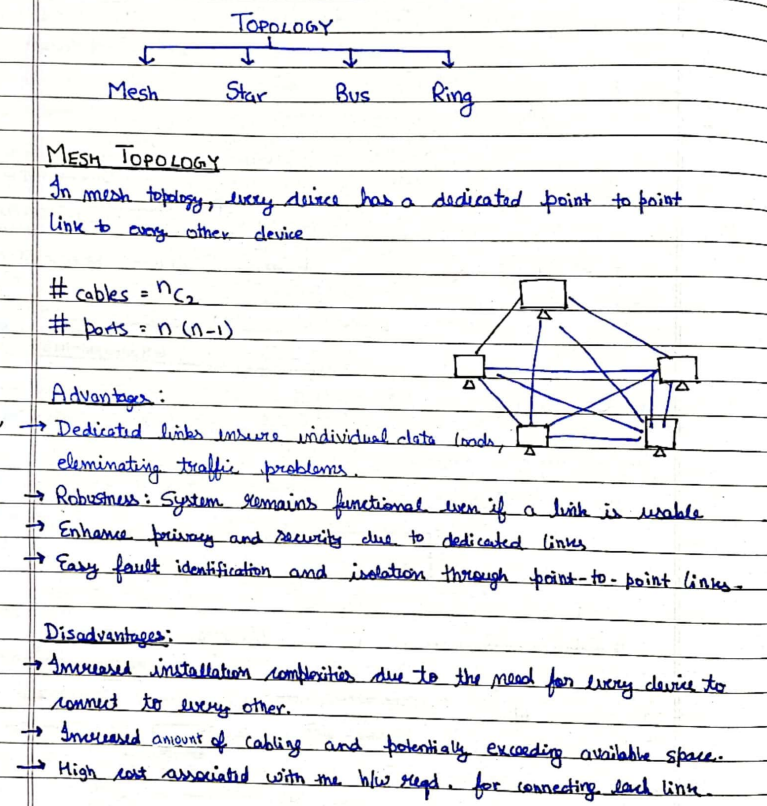 TOPOLOGY
Mesh Star Bus Ring
MESH TOPOLOGY
In mesh topology, every deivce has a dedicated point to point
link to every other device
# cables = ⁿC₂
# ports = n (n-1)
Advantages:
→ Dedicated links insure individual data loads,
eleminating traffic problems.
→ Robustness: System remains functional even if a link is usable
→ Enhance privacy and security due to dedicated links
→ Easy fault identification and isolation through point-to-point links-
Disadvantages:
→ Increased installation complexities due to the need for every device to
connect to every other.
→ Increased amount of cabling and potentially exceeding available space.
→ High cost associated with the h/w reqd. for connecting each link.